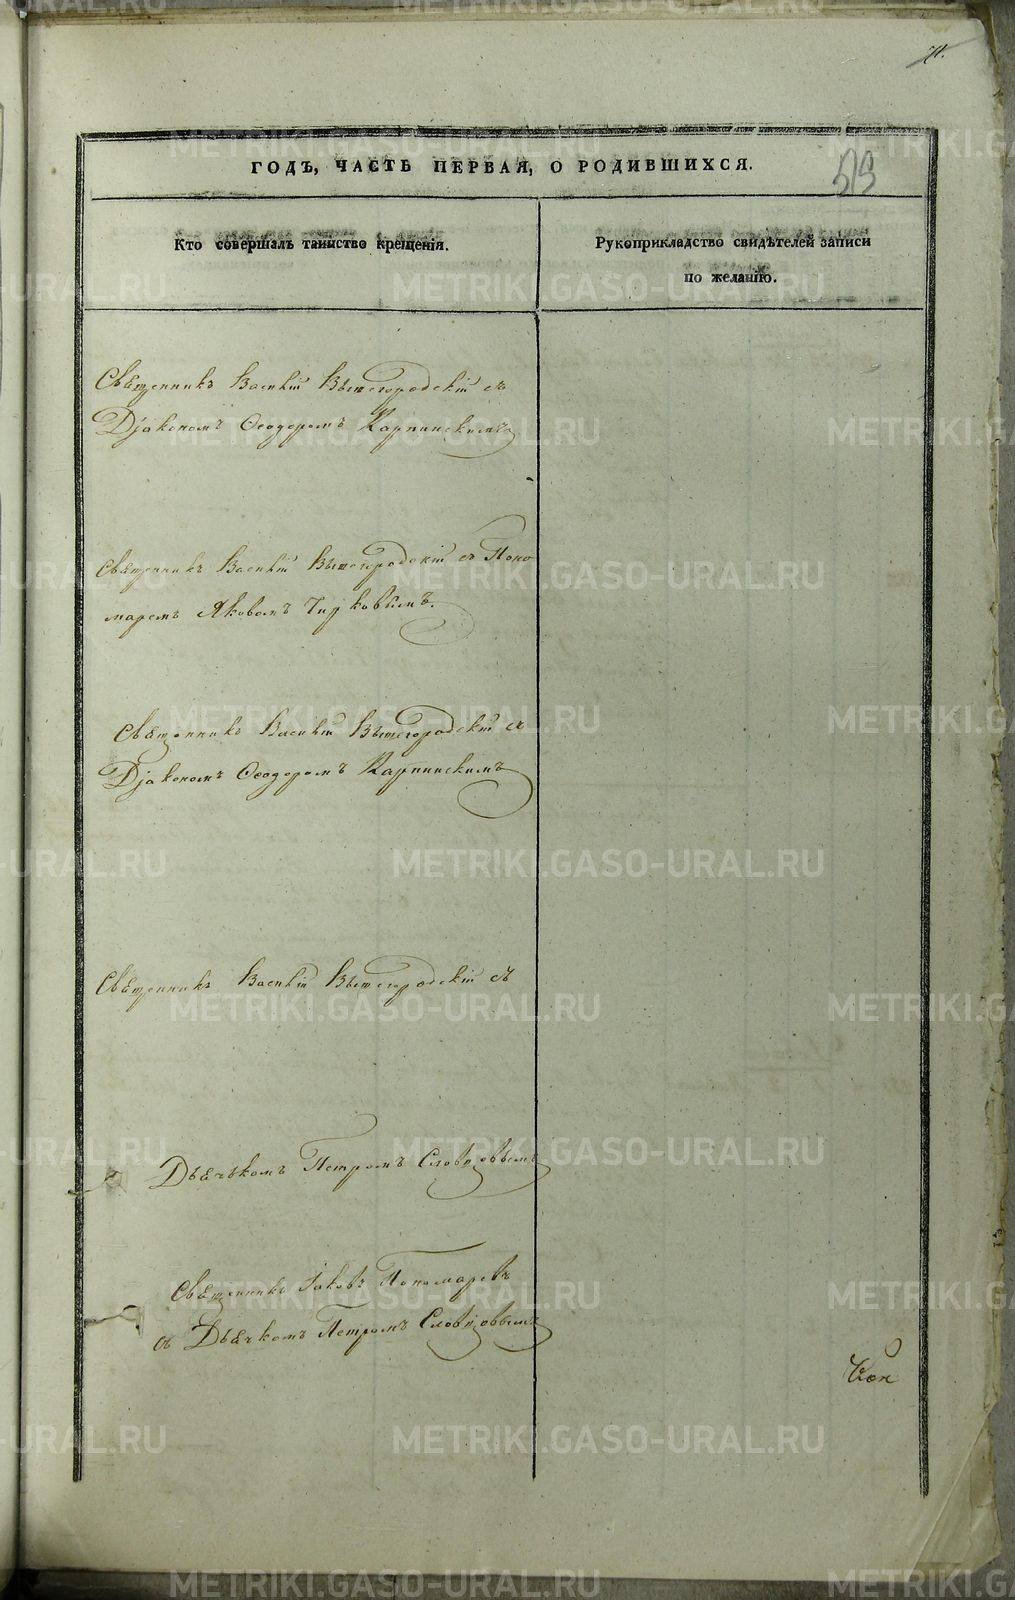 71.
ГОДЪ, ЧАСТЬ ПЕРВАЯ, О РОДИВШИХСЯ.
Кто совершалъ таинство крещенія.
Рукоприкладство свидѣтелей записи
по желанію.
Священникъ Василій Вышегородскій съ
Діакономъ Ѳеодоромъ Карпинскимъ
Священникъ Василій Вышегородскій съ Поно
маремъ Яковомъ
Священникъ Василій Вышегородскій съ
Діакономъ Ѳеодоромъ Карпинскимъ
Священникъ Василій Вышегородскій съ
Дьячькомъ Петромъ Словцовымъ
Священникъ Іаковъ Пономаревъ
съ Дьячкомъ Петромъ Словцовымъ
METRIKI.GASO-URAL.RU